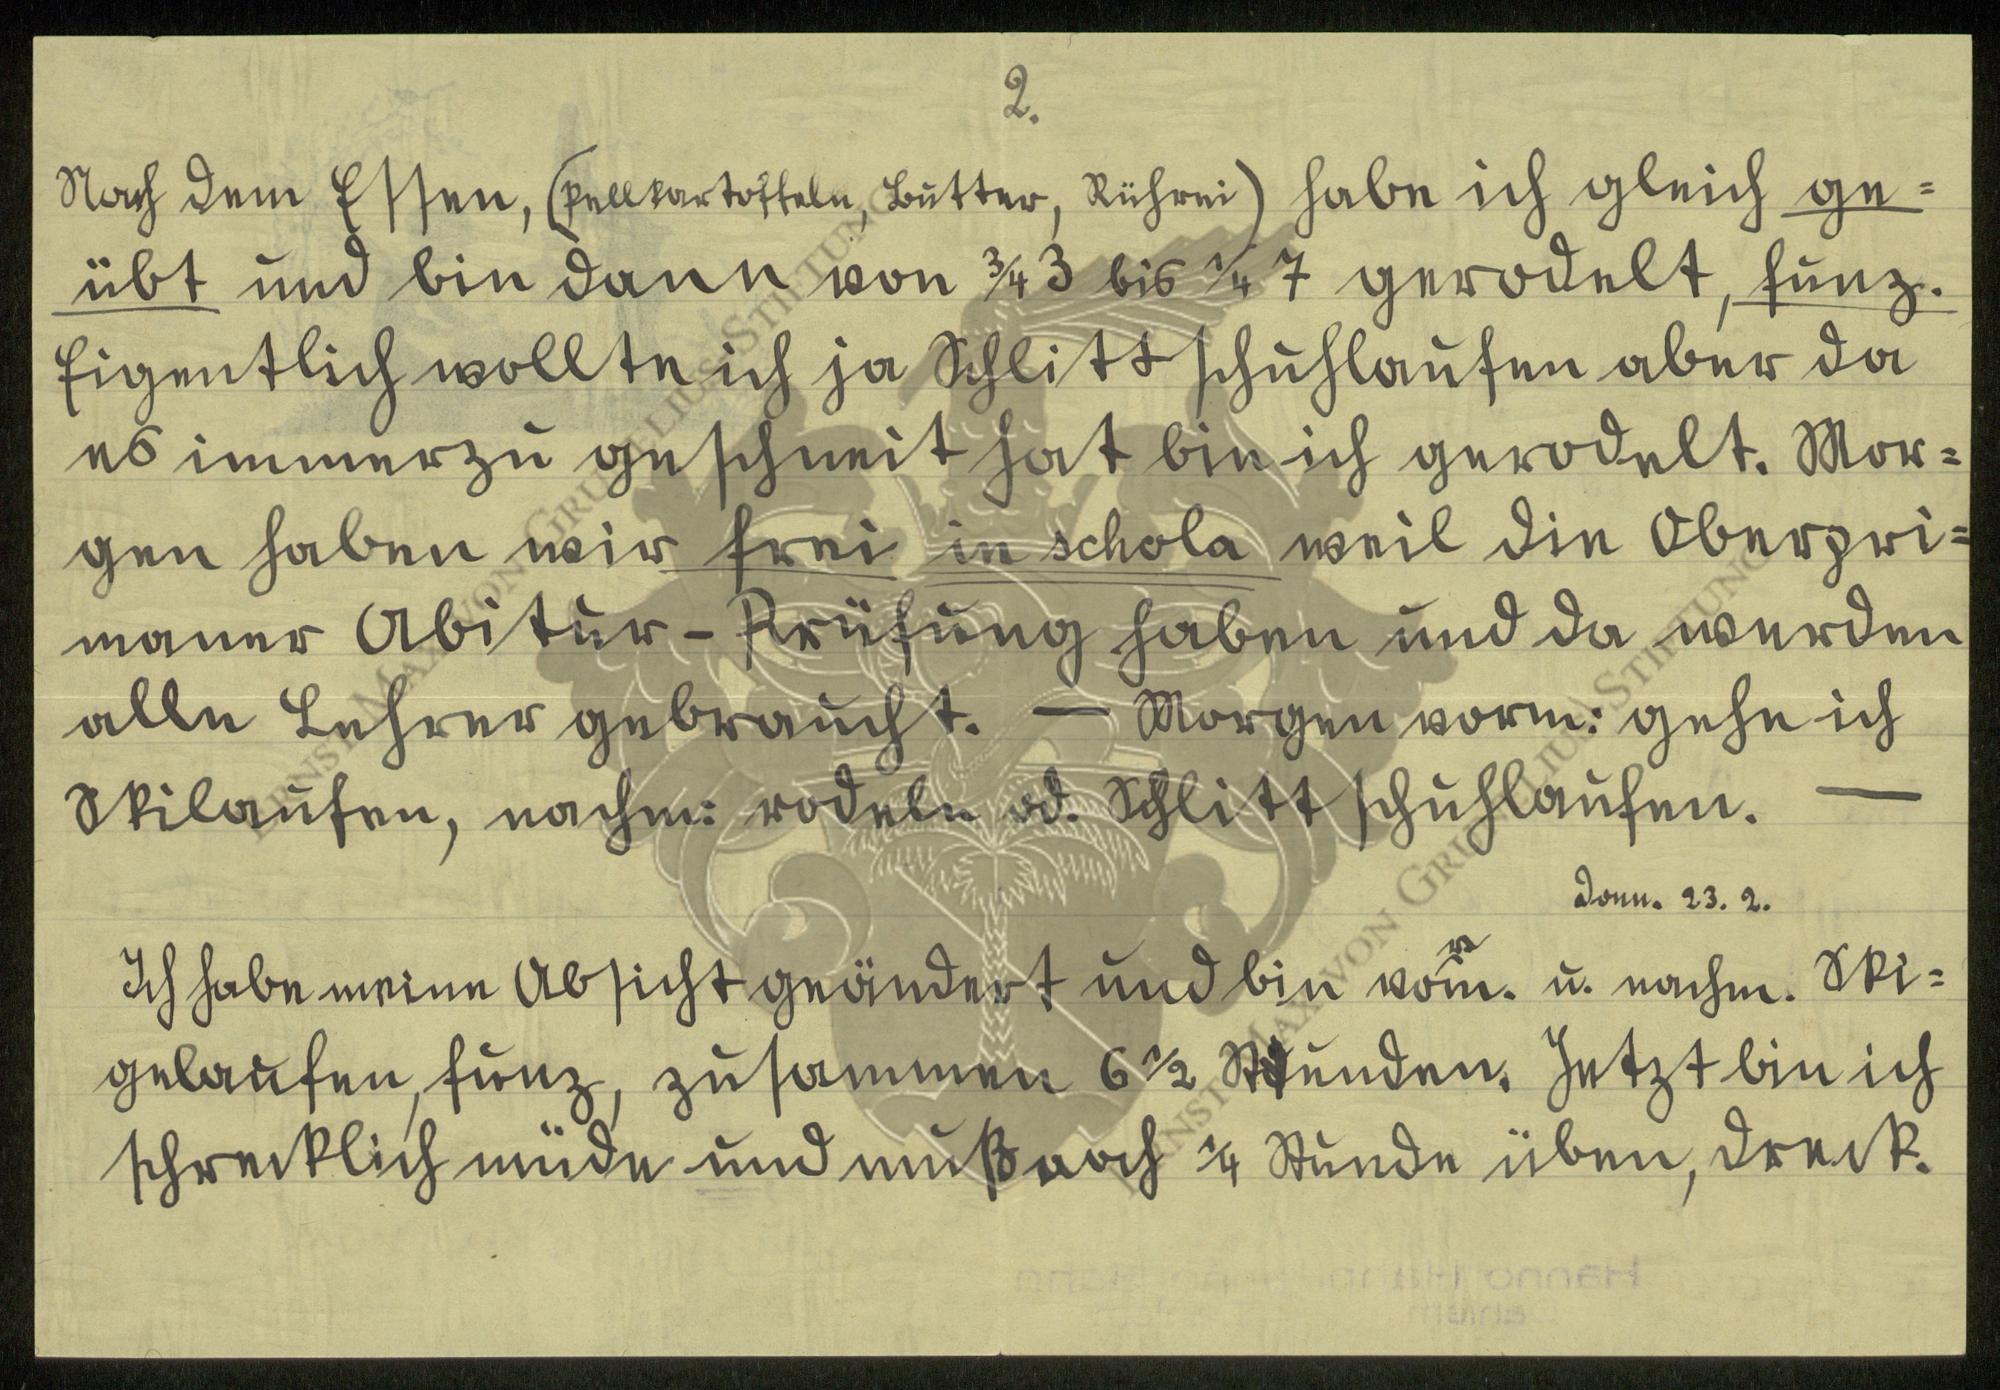 2.
Nach dem Essen, (Pellkartoffeln, Butter, Rührei) habe ich gleich ge=
übt und bin dann von ¾ 3 bis ¼ 7 gerodelt, funz.
Eigentlich wollte ich ja Schlittschuhlaufen aber da
es immerzu geschneit hat bin ich gerodelt. Mor=
gen haben wir frei in schola weil die Oberpri=
maner Abitur-Prüfung haben und da werden
alle Lehrer gebraucht. — Morgen vorm: gehe ich
Skilaufen, nachm: rodeln od. Schlittschuhlaufen. —
Donn. 23. 2.
Ich habe meine Absicht geändert und bin vorm. u. nachm. Ski=
gelaufen, funz, zusammen 6 ½ Stunden. Jetzt bin ich
schrecklich müde und muß noch ¼ Stunde üben, Dreck.
ERNST MAX VON GRUNELIUS-STIFTUNG
ERNST MAX VON GRUNELIUS-STIFTUNG